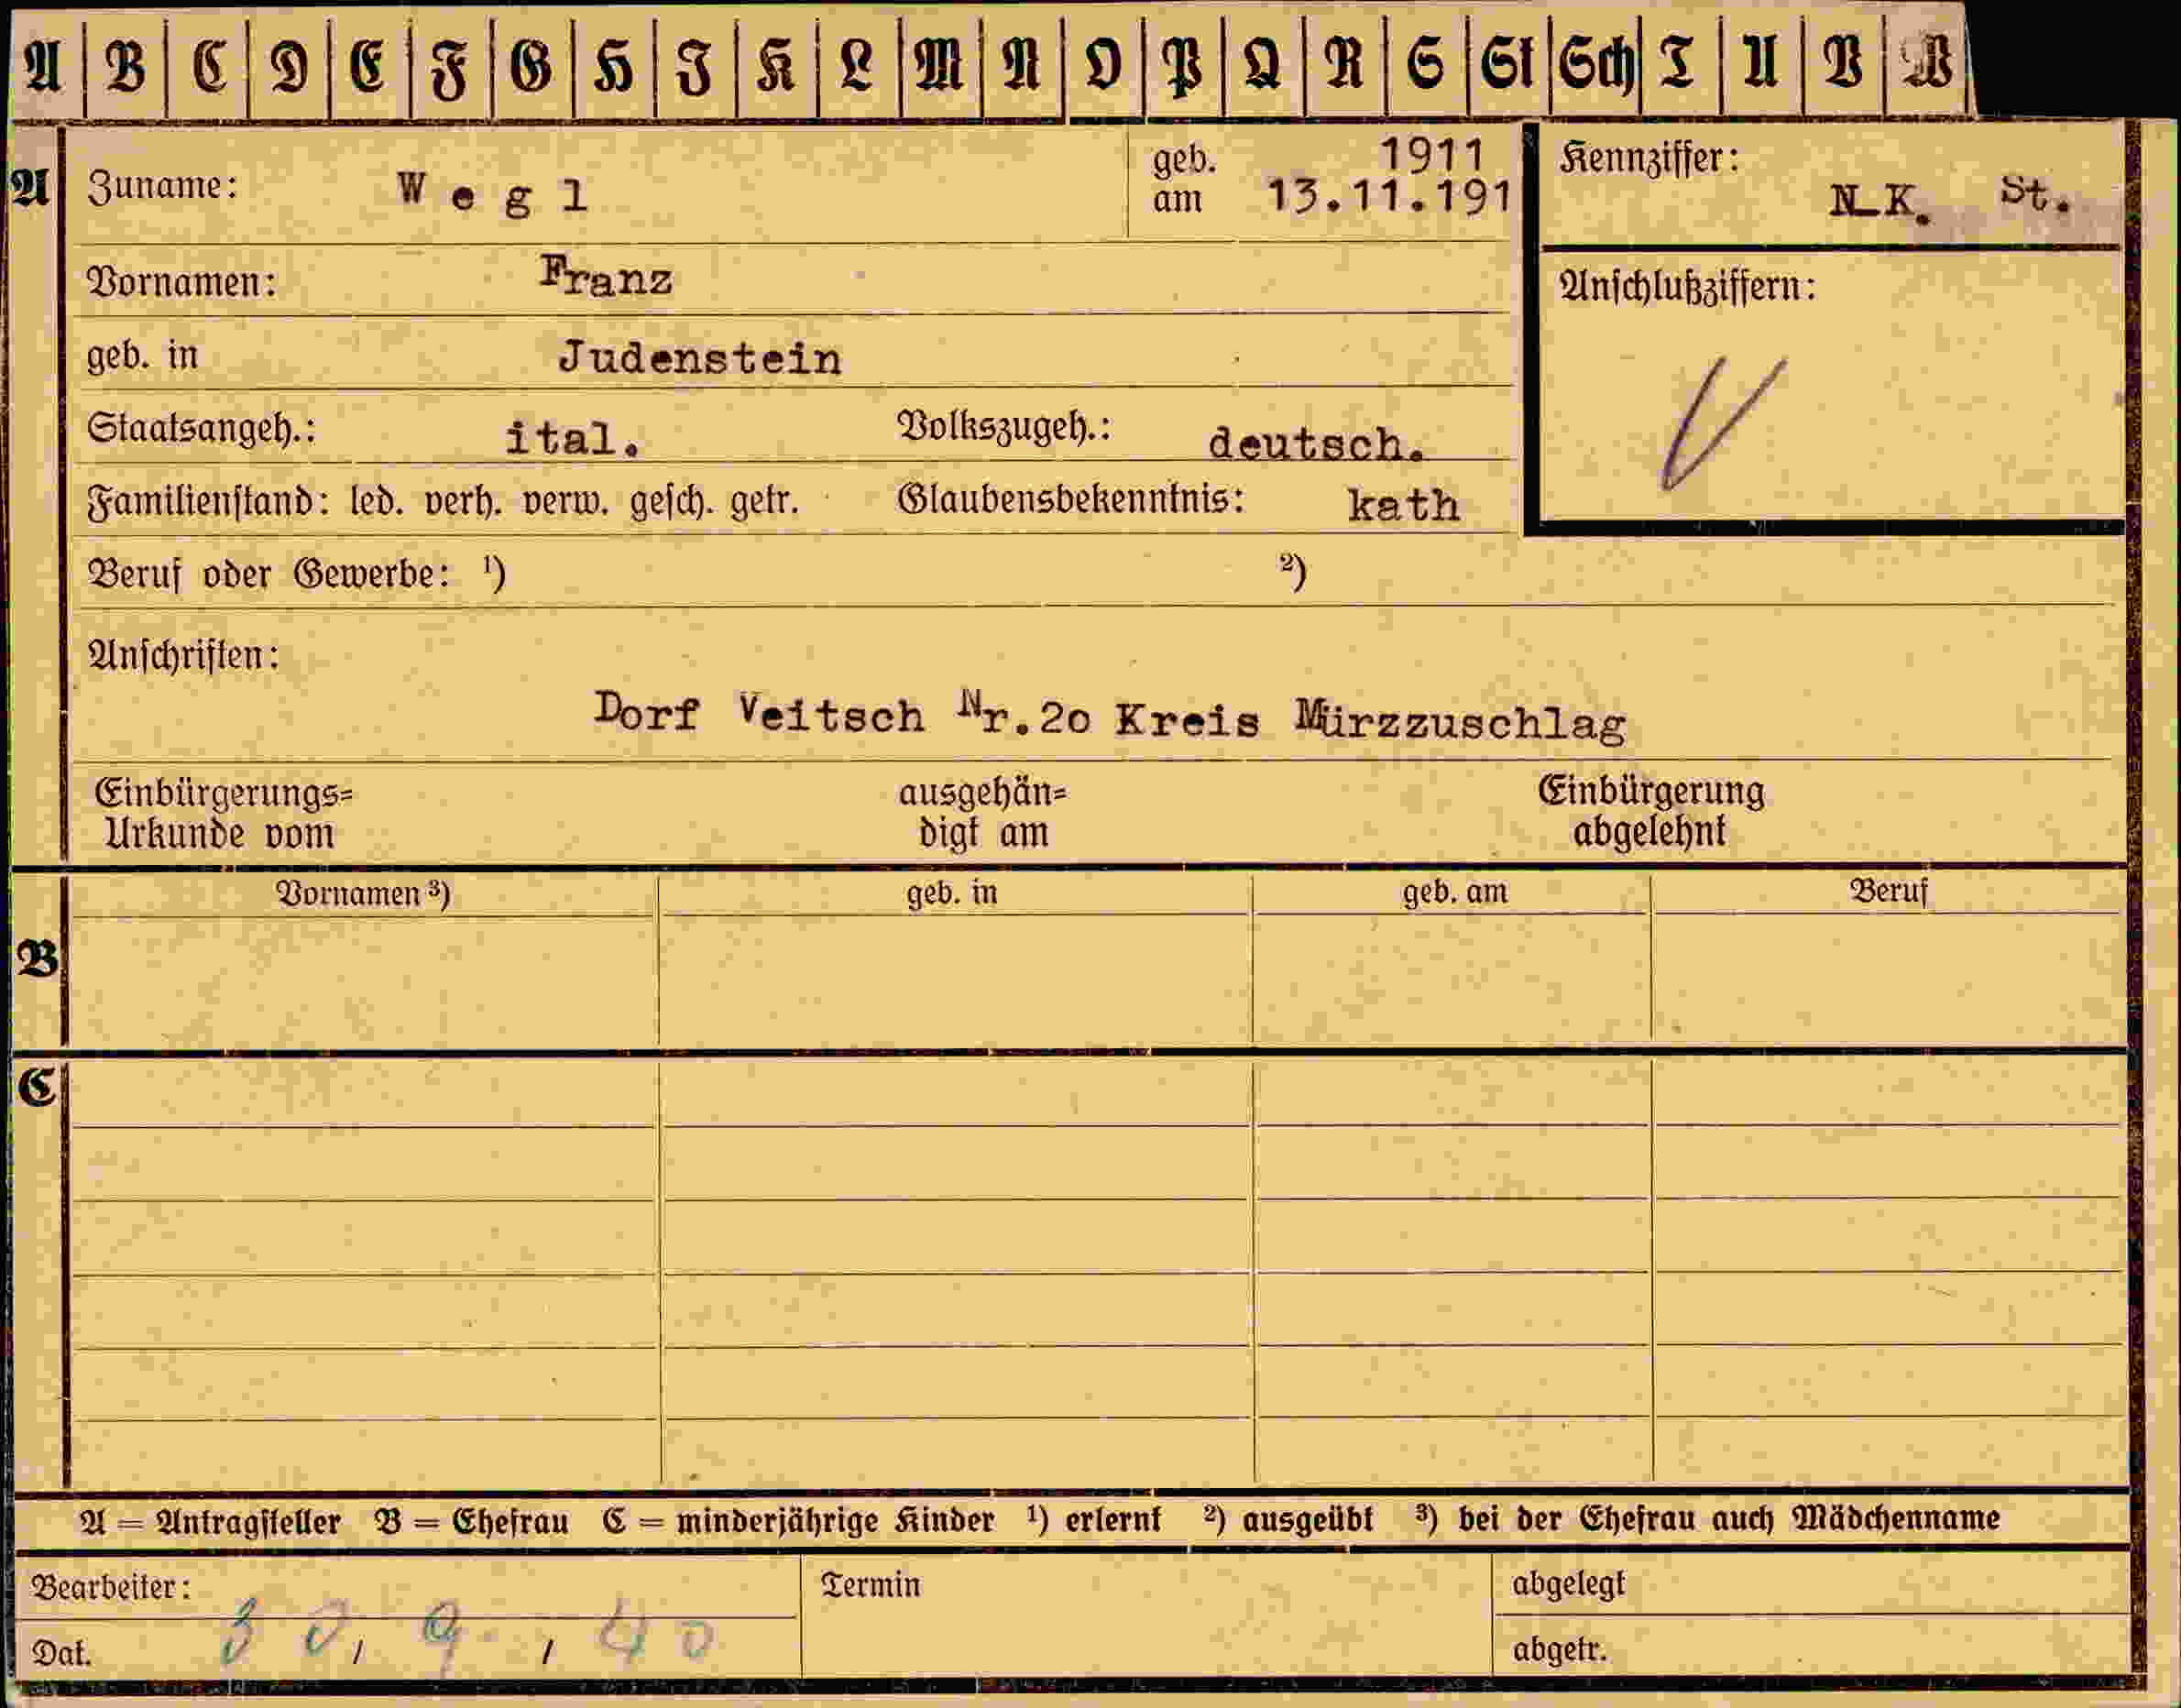 A B C D E F G H I K L M N O P Q R S St Sch T U V W
A Zuname: W e g l geb. am 1911 13.11.191 Kennziffer: N.K. St.
Vornamen: Franz Anschlußziffern:
geb. in Judenstein
Staatsangeh.: ital. Volkszugeh.: deutsch.
Familienstand: led. verh. verw. gesch. getr. Glaubensbekenntnis: kath
Beruf oder Gewerbe: ¹) ²)
Anschriften:
Dorf Veitsch Nr.20 Kreis Mürzzuschlag
Einbürgerungs= ausgehän= Einbürgerung
Urkunde vom digt am abgelehnt
Vornamen ³) geb. in geb. am Beruf
B
C
A = Antragsteller B = Ehefrau C = minderjährige Kinder ¹) erlernt ²) ausgeübt ³) bei der Ehefrau auch Mädchenname
Bearbeiter: Termin abgelegt
Dat. 30/9/40 abgetr.